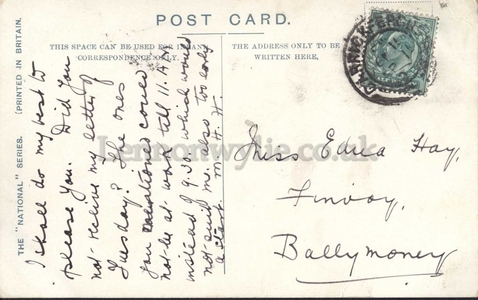 POST CARD.
THIS SPACE CAN BE USED FOR INLAND
CORRESPONDENCE ONLY.
THE ADDRESS ONLY TO BE
WRITTEN HERE.
THE "NATIONAL" SERIES. (PRINTED IN BRITAIN.
I shall do my best to
please you. Did you
not receive my letter of
Tuesday? The ones
you mentioned could
not be at work till 11. A.M
instead of 9.30. which would
not suit me. also too early
a start. M. H. H.
Miss Edna Hay,
Finvoy,
Ballymoney
Lennonwylie.co.uk